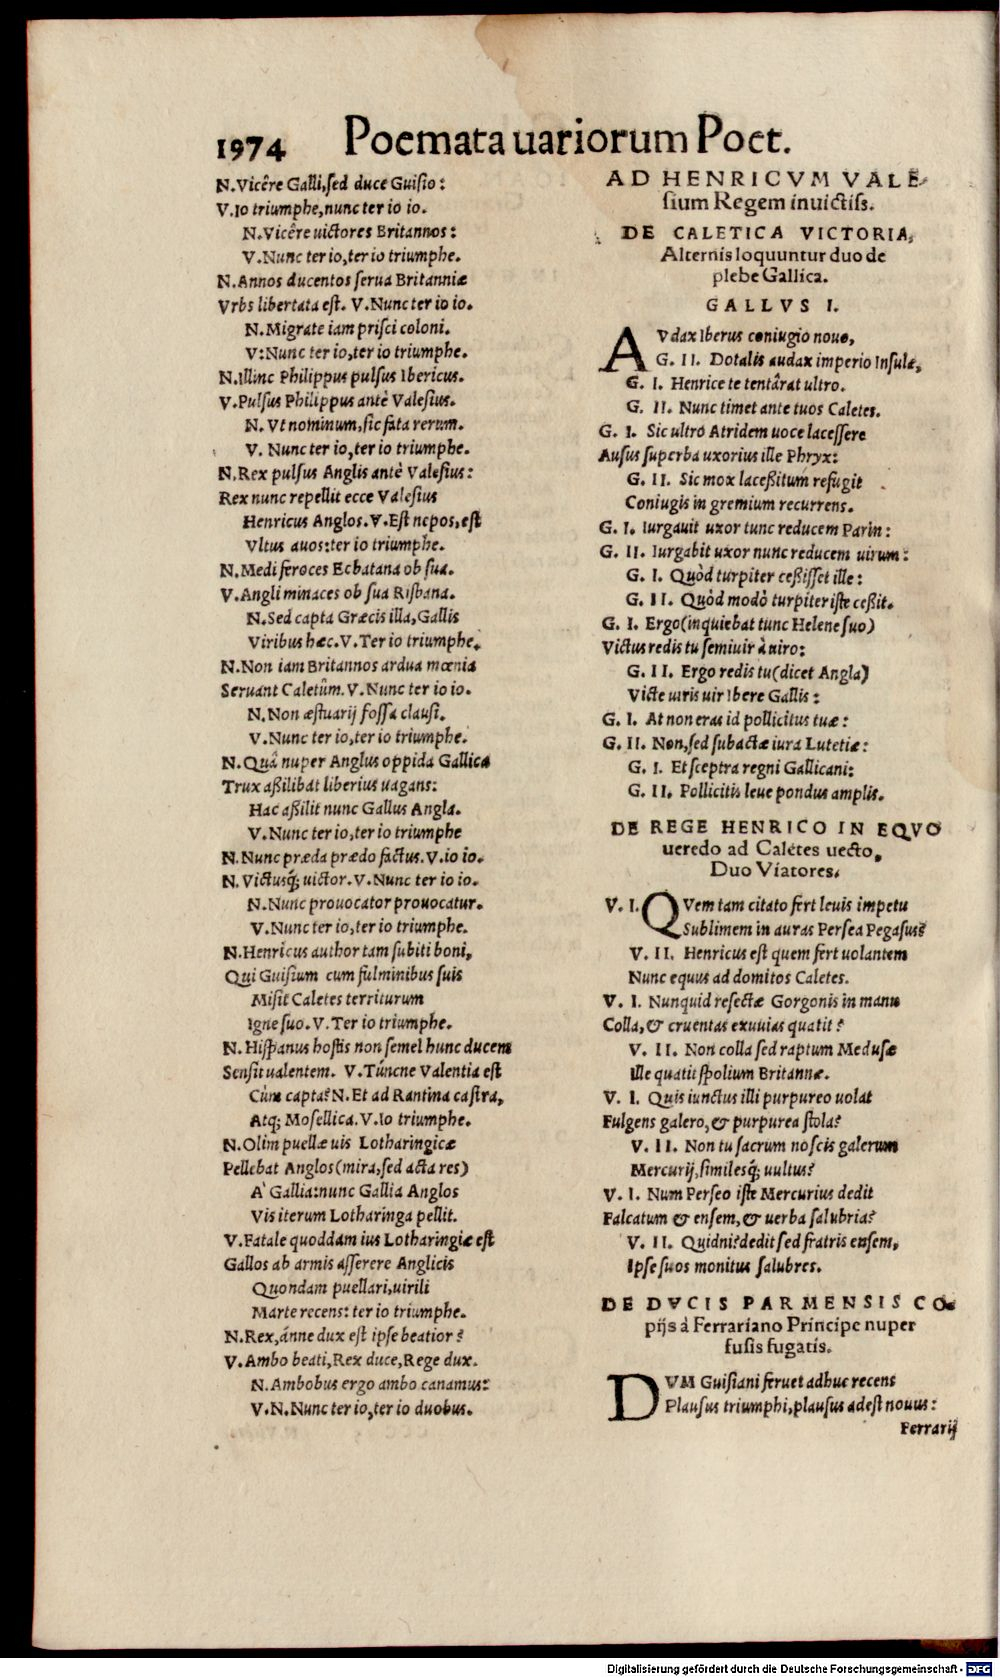 1974 Poemata uariorum Poet.
N. Vicêre Galli, sed duce Guisio:
V. Io triumphe, nunc ter io io.
N. Vicêre uictores Britannos:
V. Nunc ter io, ter io triumphe.
N. Annos ducentos serua Britanniæ
Vrbs libertata est. V. Nunc ter io io.
N. Migrate iam prisci coloni.
V: Nunc ter io, ter io triumphe.
N. Illinc Philippus pulsus Ibericus.
V. Pulsus Philippus antè Valesius.
N. Vt nominum, sic fata rerum.
V. Nunc ter io, ter io triumphe.
N. Rex pulsus Anglis antè Valesius:
Rex nunc repellit ecce Valesius
Henricus Anglos. V. Est nepos, est
Vltus auos: ter io triumphe.
N. Medi feroces Ecbatana ob sua.
V. Angli minaces ob sua Risbana.
N. Sed capta Græcis illa, Gallis
Viribus hæc. V. Ter io triumphe.
N. Non iam Britannos ardua mœnia
Seruant Caletûm. V. Nunc ter io io.
N. Non æstuarij fossa clausi.
V. Nunc ter io, ter io triumphe.
N. Quâ nuper Anglus oppida Gallica
Trux aßilibat liberius uagans:
Hac aßilit nunc Gallus Angla.
V. Nunc ter io, ter io triumphe
N. Nunc præda prædo factus. V. io io.
N. Victusq́; uictor. V. Nunc ter io io.
N. Nunc prouocator prouocatur.
V. Nunc ter io, ter io triumphe.
N. Henricus author tam subiti boni,
Qui Guisium cum fulminibus suis
Misit Caletes territurum
Igne suo. V. Ter io triumphe.
N. Hispanus hostis non semel hunc ducem
Sensit ualentem. V. Túncne Valentia est
Cùm capta? N. Et ad Rantina castra,
Atq; Mosellica. V. Io triumphe.
N. Olim puellæ uis Lotharingicæ
Pellebat Anglos (mira, sed acta res)
A` Gallia: nunc Gallia Anglos
Vis iterum Lotharinga pellit.
V. Fatale quoddam ius Lotharingiæ est
Gallos ab armis asserere Anglicis
Quondam puellari, uirili
Marte recens: ter io triumphe.
N. Rex, ánne dux est ipse beatior?
V. Ambo beati, Rex duce, Rege dux.
N. Ambobus ergo ambo canamus:
V. N. Nunc ter io, ter io duobus.
AD HENRICVM VALE-
sium Regem inuictiss.
DE CALETICA VICTORIA,
Alternis loquuntur duo de
plebe Gallica.
GALLVS I.
AVdax Iberus coniugio nouo,
G. II. Dotalis audax imperio Insulæ,
G. I. Henrice te tentârat ultro.
G. II. Nunc timet ante tuos Caletes.
G. I. Sic ultro Atridem uoce lacessere
Ausus superba uxorius ille Phryx:
G. II. Sic mox laceßitum refugit
Coniugis in gremium recurrens.
G. I. Iurgauit uxor tunc reducem Parin:
G. II. Iurgabit uxor nunc reducem uirum:
G. I. Quòd turpiter ceßisset ille:
G. II. Quòd modò turpiter iste ceßit.
G. I. Ergo (inquiebat tunc Helene suo)
Victus redis tu semiuir à uiro:
G. II. Ergo redis tu (dicet Angla)
Victe uiris uir Ibere Gallis:
G. I. At non eras id pollicitus tuæ:
G. II. Non, sed subactæ iura Lutetiæ:
G. I. Et sceptra regni Gallicani:
G. II. Pollicitis leue pondus amplis.
DE REGE HENRICO IN EQVO
ueredo ad Caletes uecto,
Duo Viatores.
V. I. QVem tam citato fert leuis impetu
Sublimem in auras Persea Pegasus?
V. II. Henricus est quem fert uolantem
Nunc equus ad domitos Caletes.
V. I. Nunquid resectæ Gorgonis in manu
Colla, & cruentas exuuias quatit?
V. II. Non colla sed raptum Medusæ
Ille quatit spolium Britannæ.
V. I. Quis iunctus illi purpureo uolat
Fulgens galero, & purpurea stola?
V. II. Non tu sacrum noscis galerum
Mercurij, similesq́; uultus?
V. I. Num Perseo iste Mercurius dedit
Falcatum & ensem, & uerba salubria?
V. II. Quidni? dedit sed fratris ensem,
Ipse suos monitus salubres.
DE DVCIS PARMENSIS CO-
pijs à Ferrariano Principe nuper
fusis fugatis.
DVM Guisiani feruet adhuc recens
Plausus triumphi, plausus adest nouus:
Ferrarij
Digitalisierung gefördert durch die Deutsche Forschungsgemeinschaft - DFG